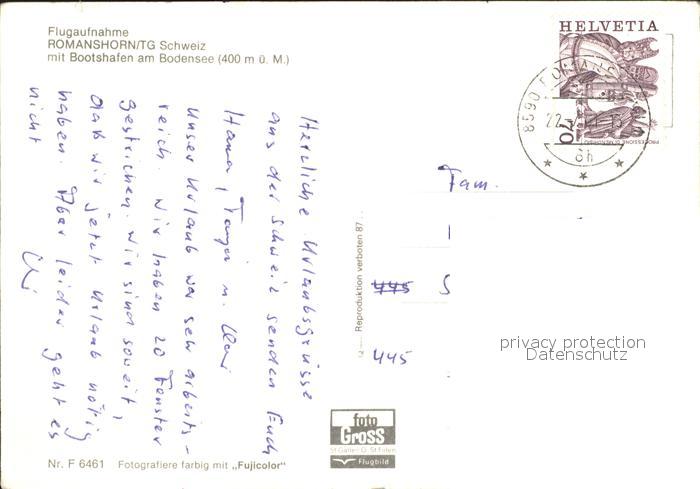 Flugaufnahme
ROMANSHORN/TG Schweiz
mit Bootshafen am Bodensee (400 m ü. M.)
HELVETIA
70
8590 ROMANSHORN
8h
Herzliche Urlaubsgrüsse
aus der Schweiz senden Euch
Hanna, Tanja u. Uwe
Unser Urlaub war sehr arbeits-
reich. Wir haben 20 Fenster
gestrichen. Wir sind soweit,
daß wir jetzt Urlaub nötig
haben. Aber leider geht es
nicht
Fam.
445 S
445
Reproduktion verboten 87
privacy protection
Datenschutz
foto
Gross
St. Gallen
Flugbild
Nr. F 6461 Fotografiere farbig mit „Fujicolor"